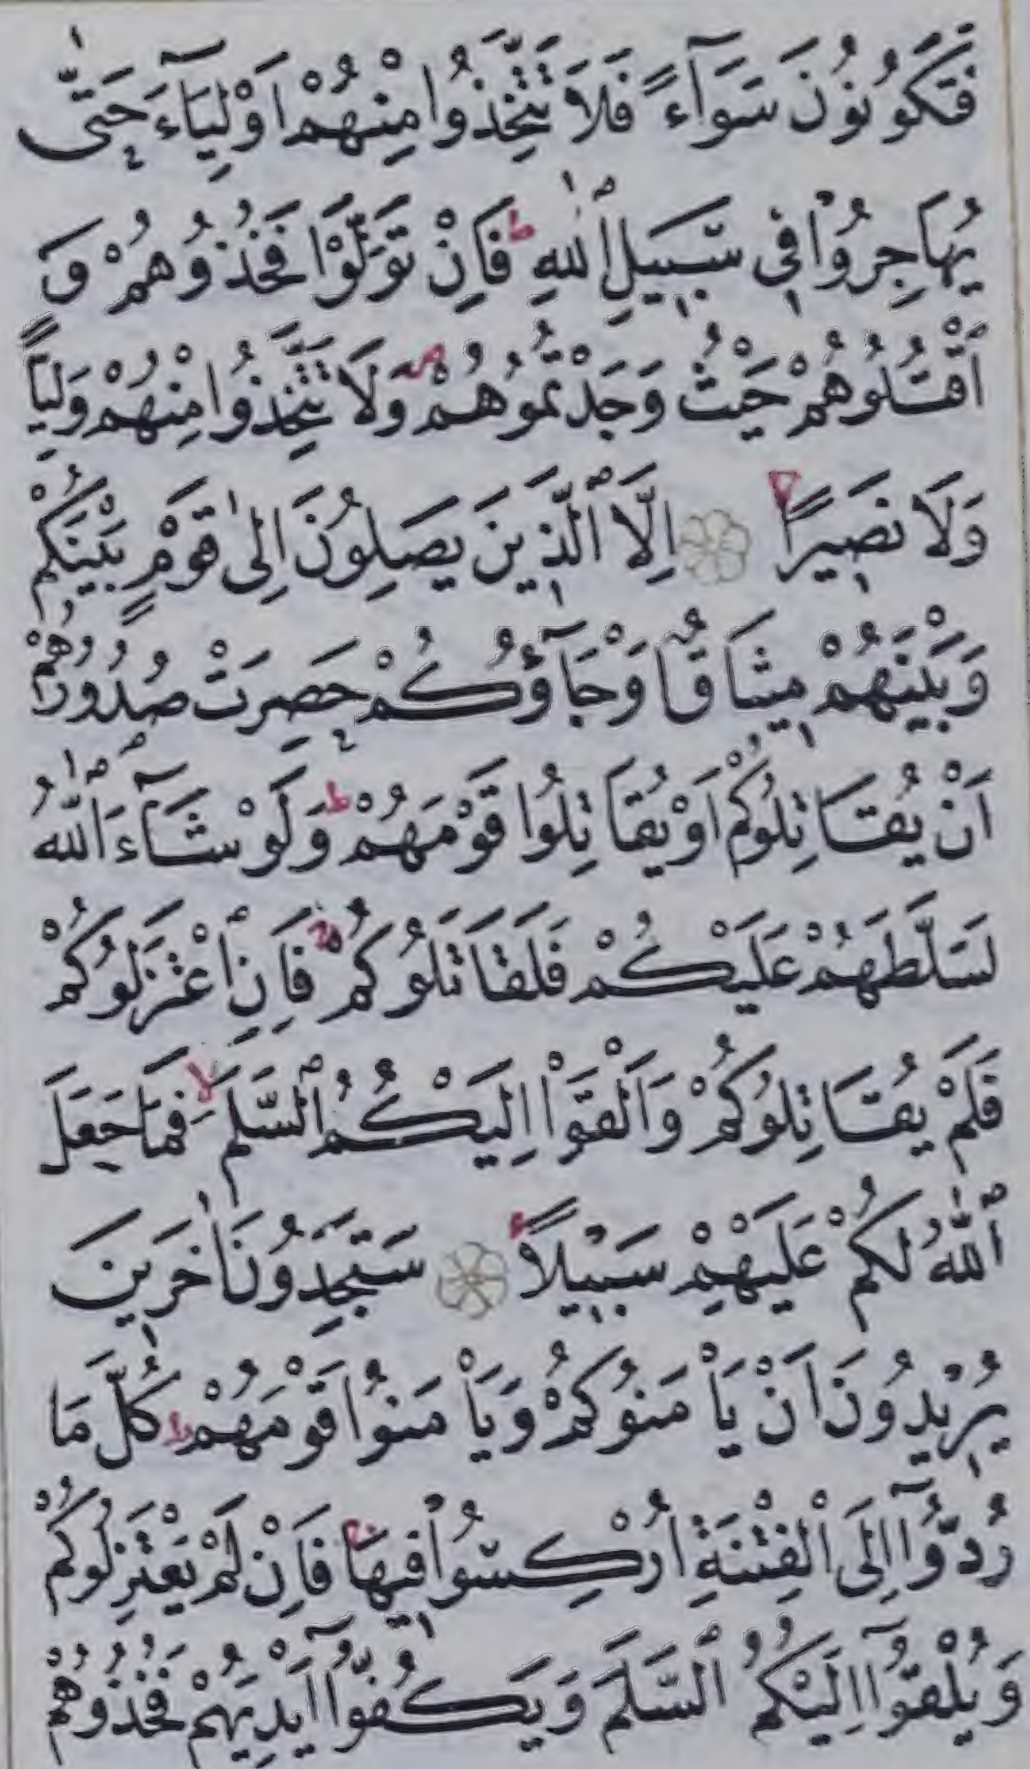 فَتَكُونُونَ سَوَآءً فَلَا تَتَّخِذُوا مِنْهُمْ اَوْلِيَآءَ حَتّٰى
يُهَاجِرُوا فِي سَبِيلِ اللّٰهِ ط فَاِنْ تَوَلَّوْا فَخُذُوهُمْ وَ
ٱقْتُلُوهُمْ حَيْثُ وَجَدْتُمُوهُمْ ص وَلَا تَتَّخِذُوا مِنْهُمْ وَلِيًّا
وَلَا نَصِيرًا اِلَّا ٱلَّذِينَ يَصِلُونَ اِلٰى قَوْمٍ بَيْنَكُمْ
وَبَيْنَهُمْ مِيثَاقٌ اَوْ جَآؤُكُمْ حَصِرَتْ صُدُورُهُمْ
اَنْ يُقَاتِلُوكُمْ اَوْ يُقَاتِلُوا قَوْمَهُمْ ط وَلَوْ شَآءَ ٱللّٰهُ
لَسَلَّطَهُمْ عَلَيْكُمْ فَلَقَاتَلُوكُمْ ج فَاِنِ ٱعْتَزَلُوكُمْ
فَلَمْ يُقَاتِلُوكُمْ وَاَلْقَوْا اِلَيْكُمُ ٱلسَّلَمَ لا فَمَا جَعَلَ
ٱللّٰهُ لَكُمْ عَلَيْهِمْ سَبِيلًا سَتَجِدُونَ اٰخَرِينَ
يُرِيدُونَ اَنْ يَأْمَنُوكُمْ وَيَأْمَنُوا قَوْمَهُمْ ط كُلَّ مَا
رُدُّوٓا اِلَى ٱلْفِتْنَةِ اُرْكِسُوا فِيهَا ج فَاِنْ لَمْ يَعْتَزِلُوكُمْ
وَيُلْقُوٓا اِلَيْكُمُ ٱلسَّلَمَ وَيَكُفُّوٓا اَيْدِيَهُمْ فَخُذُوهُمْ